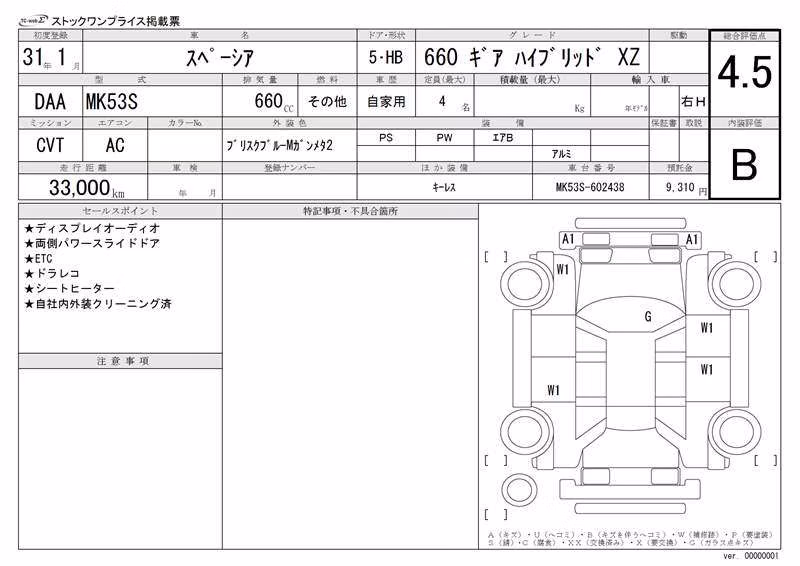 TC-webΣ ストックワンプライス掲載票
初度登録 車名 ドア・形状 グレード 駆動 総合評価点
31年 1月 スペーシア 5・HB 660 ギア ハイブリッド XZ 4.5
型式 排気量 燃料 車歴 定員(最大) 積載量(最大) 輸入車
DAA MK53S 660CC その他 自家用 4名 Kg 年モデル 右H
ミッション エアコン カラーNo. 外装色 装備 保証書 取説 内装評価
CVT AC ブリスクブルーMガンメタ2 PS PW エアB B
アルミ
走行距離 車検 登録ナンバー ほか装備 車台番号 預託金
33,000km 年 月 キーレス MK53S-602438 9,310円
セールスポイント 特記事項・不具合箇所
★ディスプレイオーディオ
★両側パワースライドドア
★ETC
★ドラレコ
★シートヒーター
★自社内外装クリーニング済
注意事項
A1 A1
[ ] [ ]
W1
G
W1
W1
W1
[ ] [ ]
[ ]
A(キズ)・U(ヘコミ)・B(キズを伴うヘコミ)・W(補修跡)・P(要塗装)
S(錆)・C(腐食)・XX(交換済み)・X(要交換)・G(ガラス点キズ)
ver. 00000001